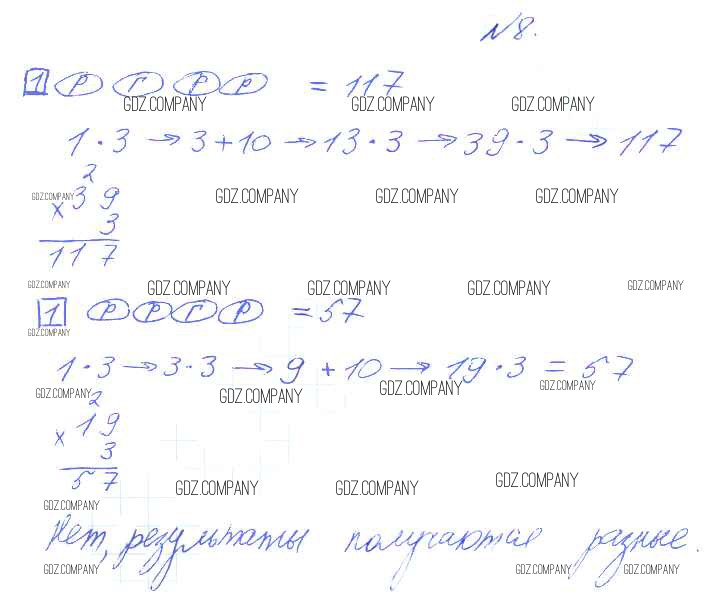 №8.
1 Р Г Р Р = 117
GDZ.COMPANY GDZ.COMPANY GDZ.COMPANY
1 · 3 → 3 + 10 → 13 · 3 → 39 · 3 → 117
2
GDZ.COMPANY GDZ.COMPANY GDZ.COMPANY GDZ.COMPANY
× 39
3
117
GDZ.COMPANY GDZ.COMPANY GDZ.COMPANY GDZ.COMPANY GDZ.COMPANY
1 Р Р Г Р = 57
GDZ.COMPANY
1 · 3 → 3 · 3 → 9 + 10 → 19 · 3 = 57
GDZ.COMPANY GDZ.COMPANY GDZ.COMPANY GDZ.COMPANY
2
× 19
3
57
GDZ.COMPANY GDZ.COMPANY GDZ.COMPANY
GDZ.COMPANY
Нет, результаты получаются разные.
GDZ.COMPANY GDZ.COMPANY GDZ.COMPANY